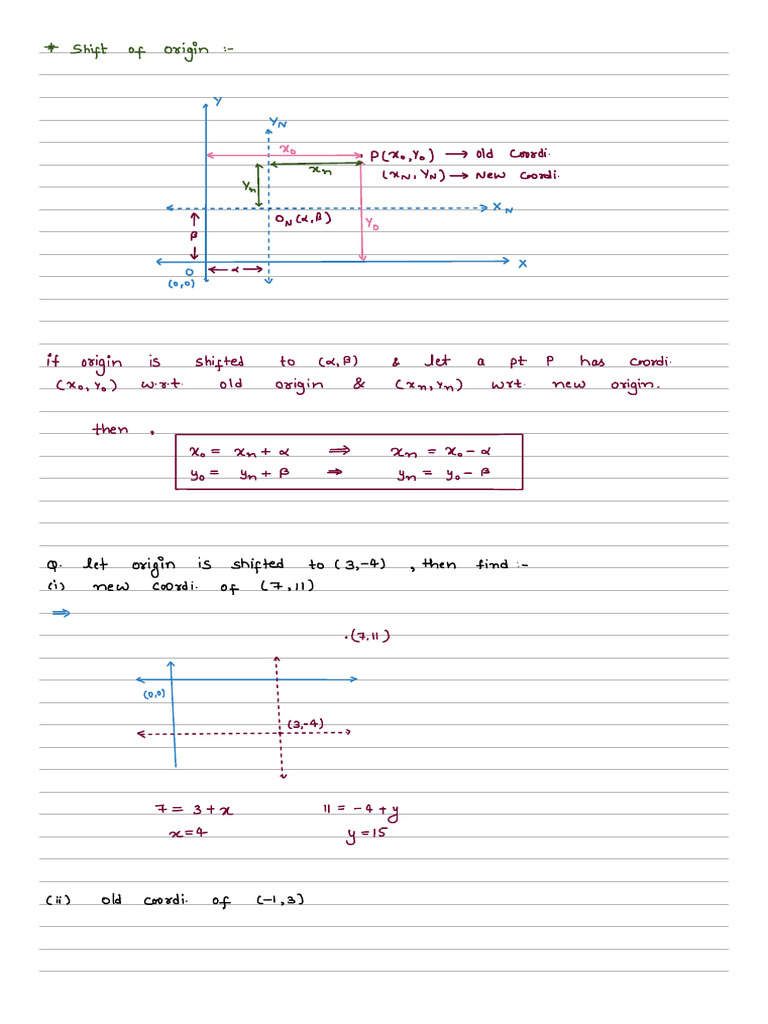 * Shift of origin :-
Y
YN
x₀
P(x₀,y₀) → old coordi.
xn
(xN, YN) → New coordi.
Yn
XN
ON(α,β)
Y₀
β
X
O
α
(0,0)
if origin is shifted to (α,β) & let a pt P has coordi.
(x₀, y₀) w.r.t. old origin & (xn,yn) wrt. new origin.
then ,
x₀ = xn + α ⟹ xn = x₀ - α
y₀ = yn + β ⇒ yn = y₀ - β
Q. let origin is shifted to (3,-4) , then find :-
(i) new coordi. of (7,11)
⇒
.(7,11)
(0,0)
(3,-4)
7 = 3+x 11 = -4+y
x=4 y=15
(ii) old coordi. of (-1,3)